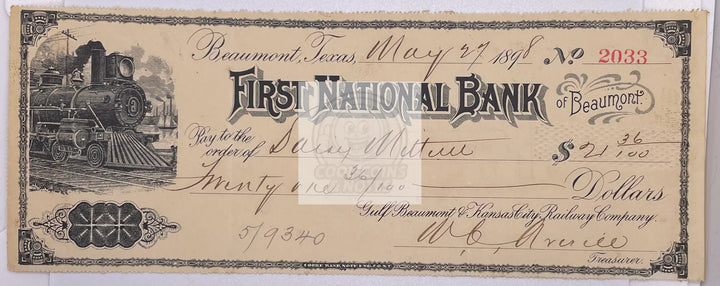 Beaumont, Texas, May 27 1898 No. 2033
FIRST NATIONAL BANK of Beaumont.
Pay to the order of $ 21 36/100
Twenty one 36/100 Dollars
Gulf Beaumont & Kansas City Railway Company.
W. C. Averill
Treasurer.
519340